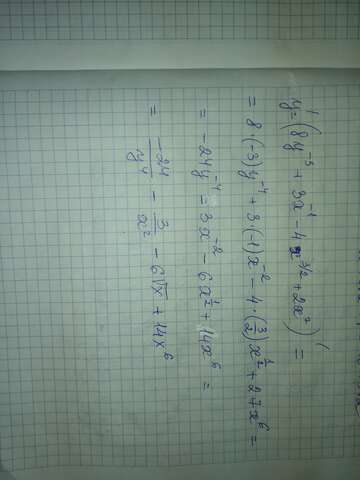 y' = (8y⁻³ + 3x⁻¹ - 4x^{3/2} + 2x⁷)' =
= 8·(-3)y⁻⁴ + 3·(-1)x⁻² - 4·(3/2)x^{1/2} + 2·7x⁶ =
= -24y⁻⁴ = 3x⁻² - 6x^{1/2} + 14x⁶ =
= -24/y⁴ - 3/x² - 6√x + 14x⁶